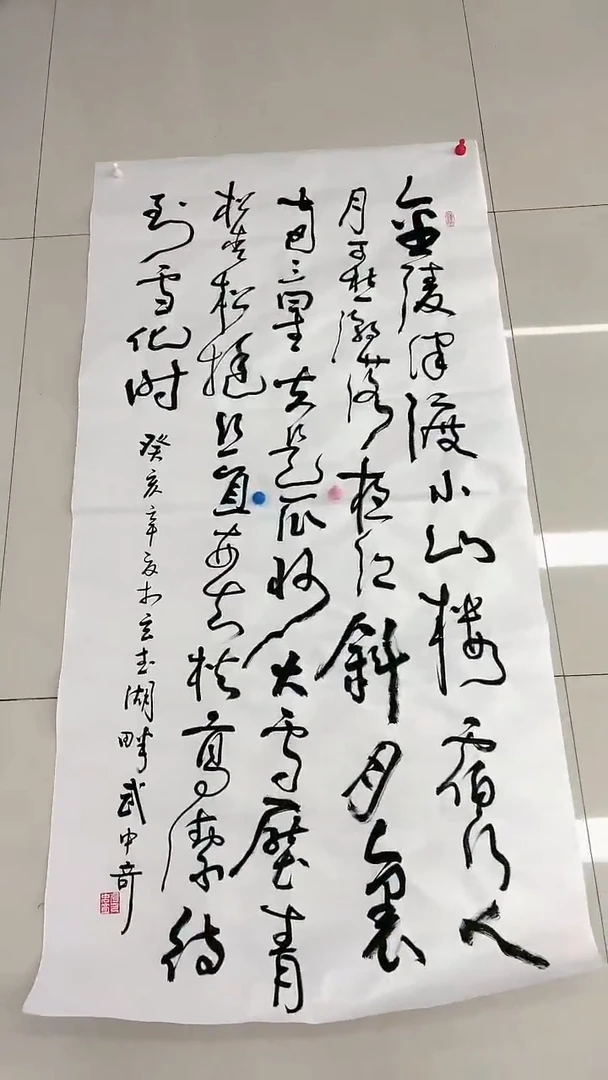 金陵津渡小山楼一宿行人
自可愁潮落夜江斜月裏
三星火是瓜州大雪壓青
松青松挺且直要知松高潔待
到雪化时
癸亥于玄武湖畔武中奇